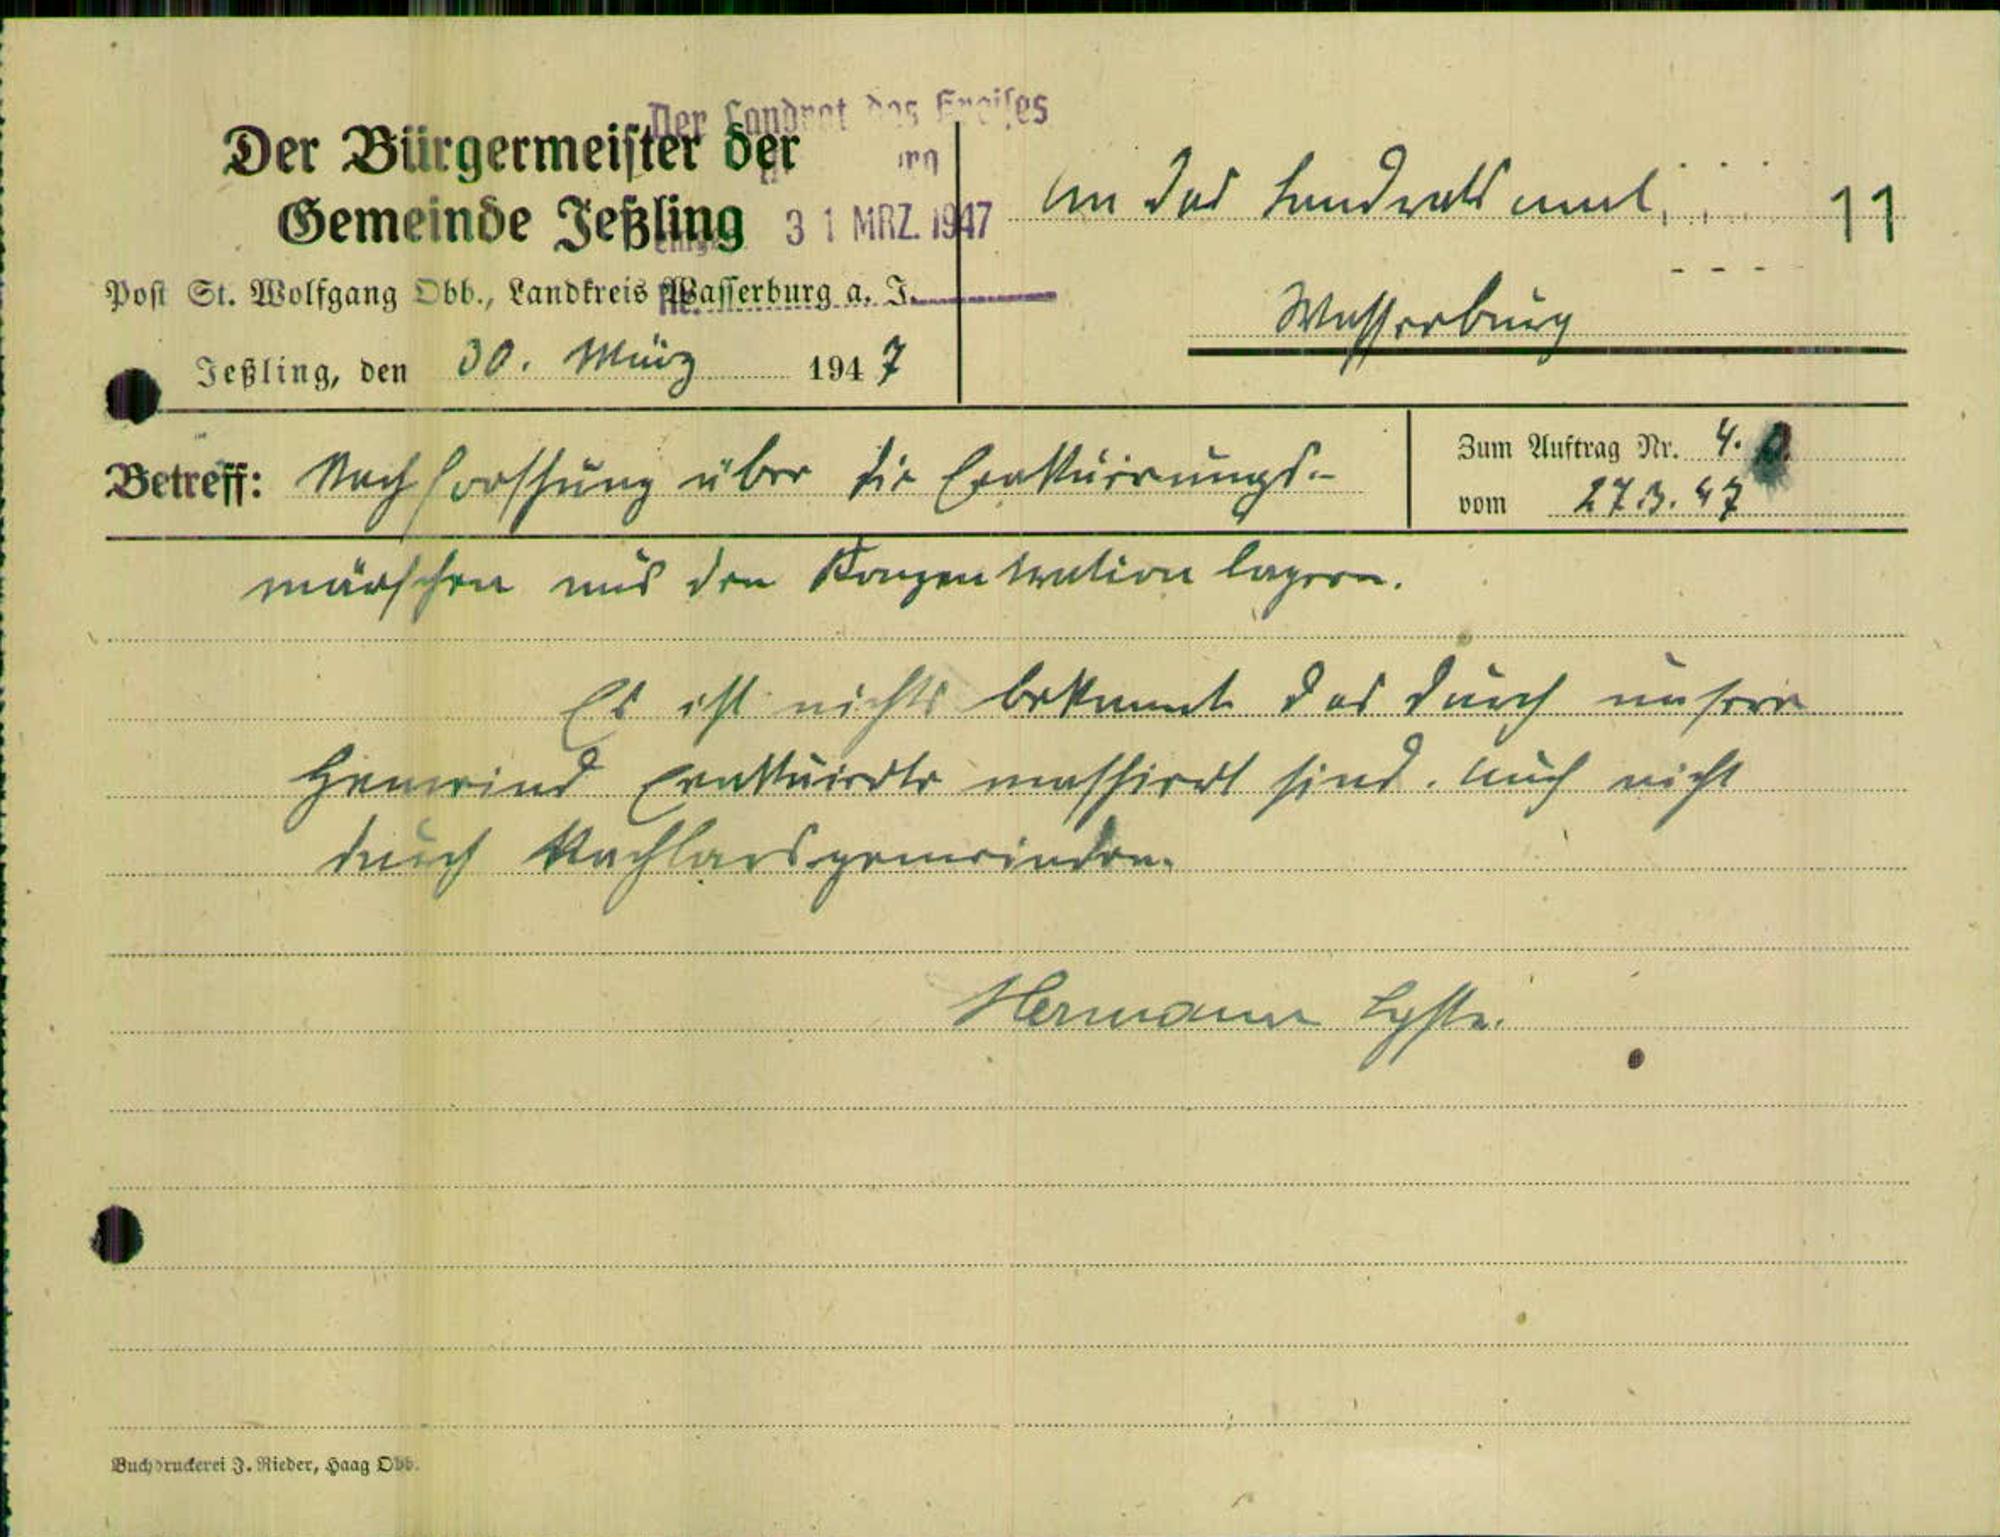 Der Landrat des Kreises
Der Bürgermeister der
Gemeinde Jeßling
31 MRZ. 1947
An das Landratsamt
11
Post St. Wolfgang Obb., Landkreis Wasserburg a. J.
Wasserburg
Jeßling, den 30. März 1947
Betreff: Nachforschung über die Evakuirungs-
Zum Auftrag Nr. 4.
vom 27.3.47
märschen aus den Konzentration lagern.
Es ist nichts bekannt das durch unsere
Gemeind Evakuirte maschiert sind. Auch nicht
durch Nachbarsgemeinden.
Hermann
Buchdruckerei J. Rieder, Haag Obb.